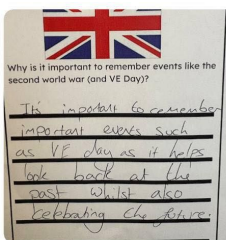 Why is it important to remember events like the
second world war (and VE Day)?
It's important to remember
important events such
as VE day as it helps
look back at the
past whilst also
celebrating the future.